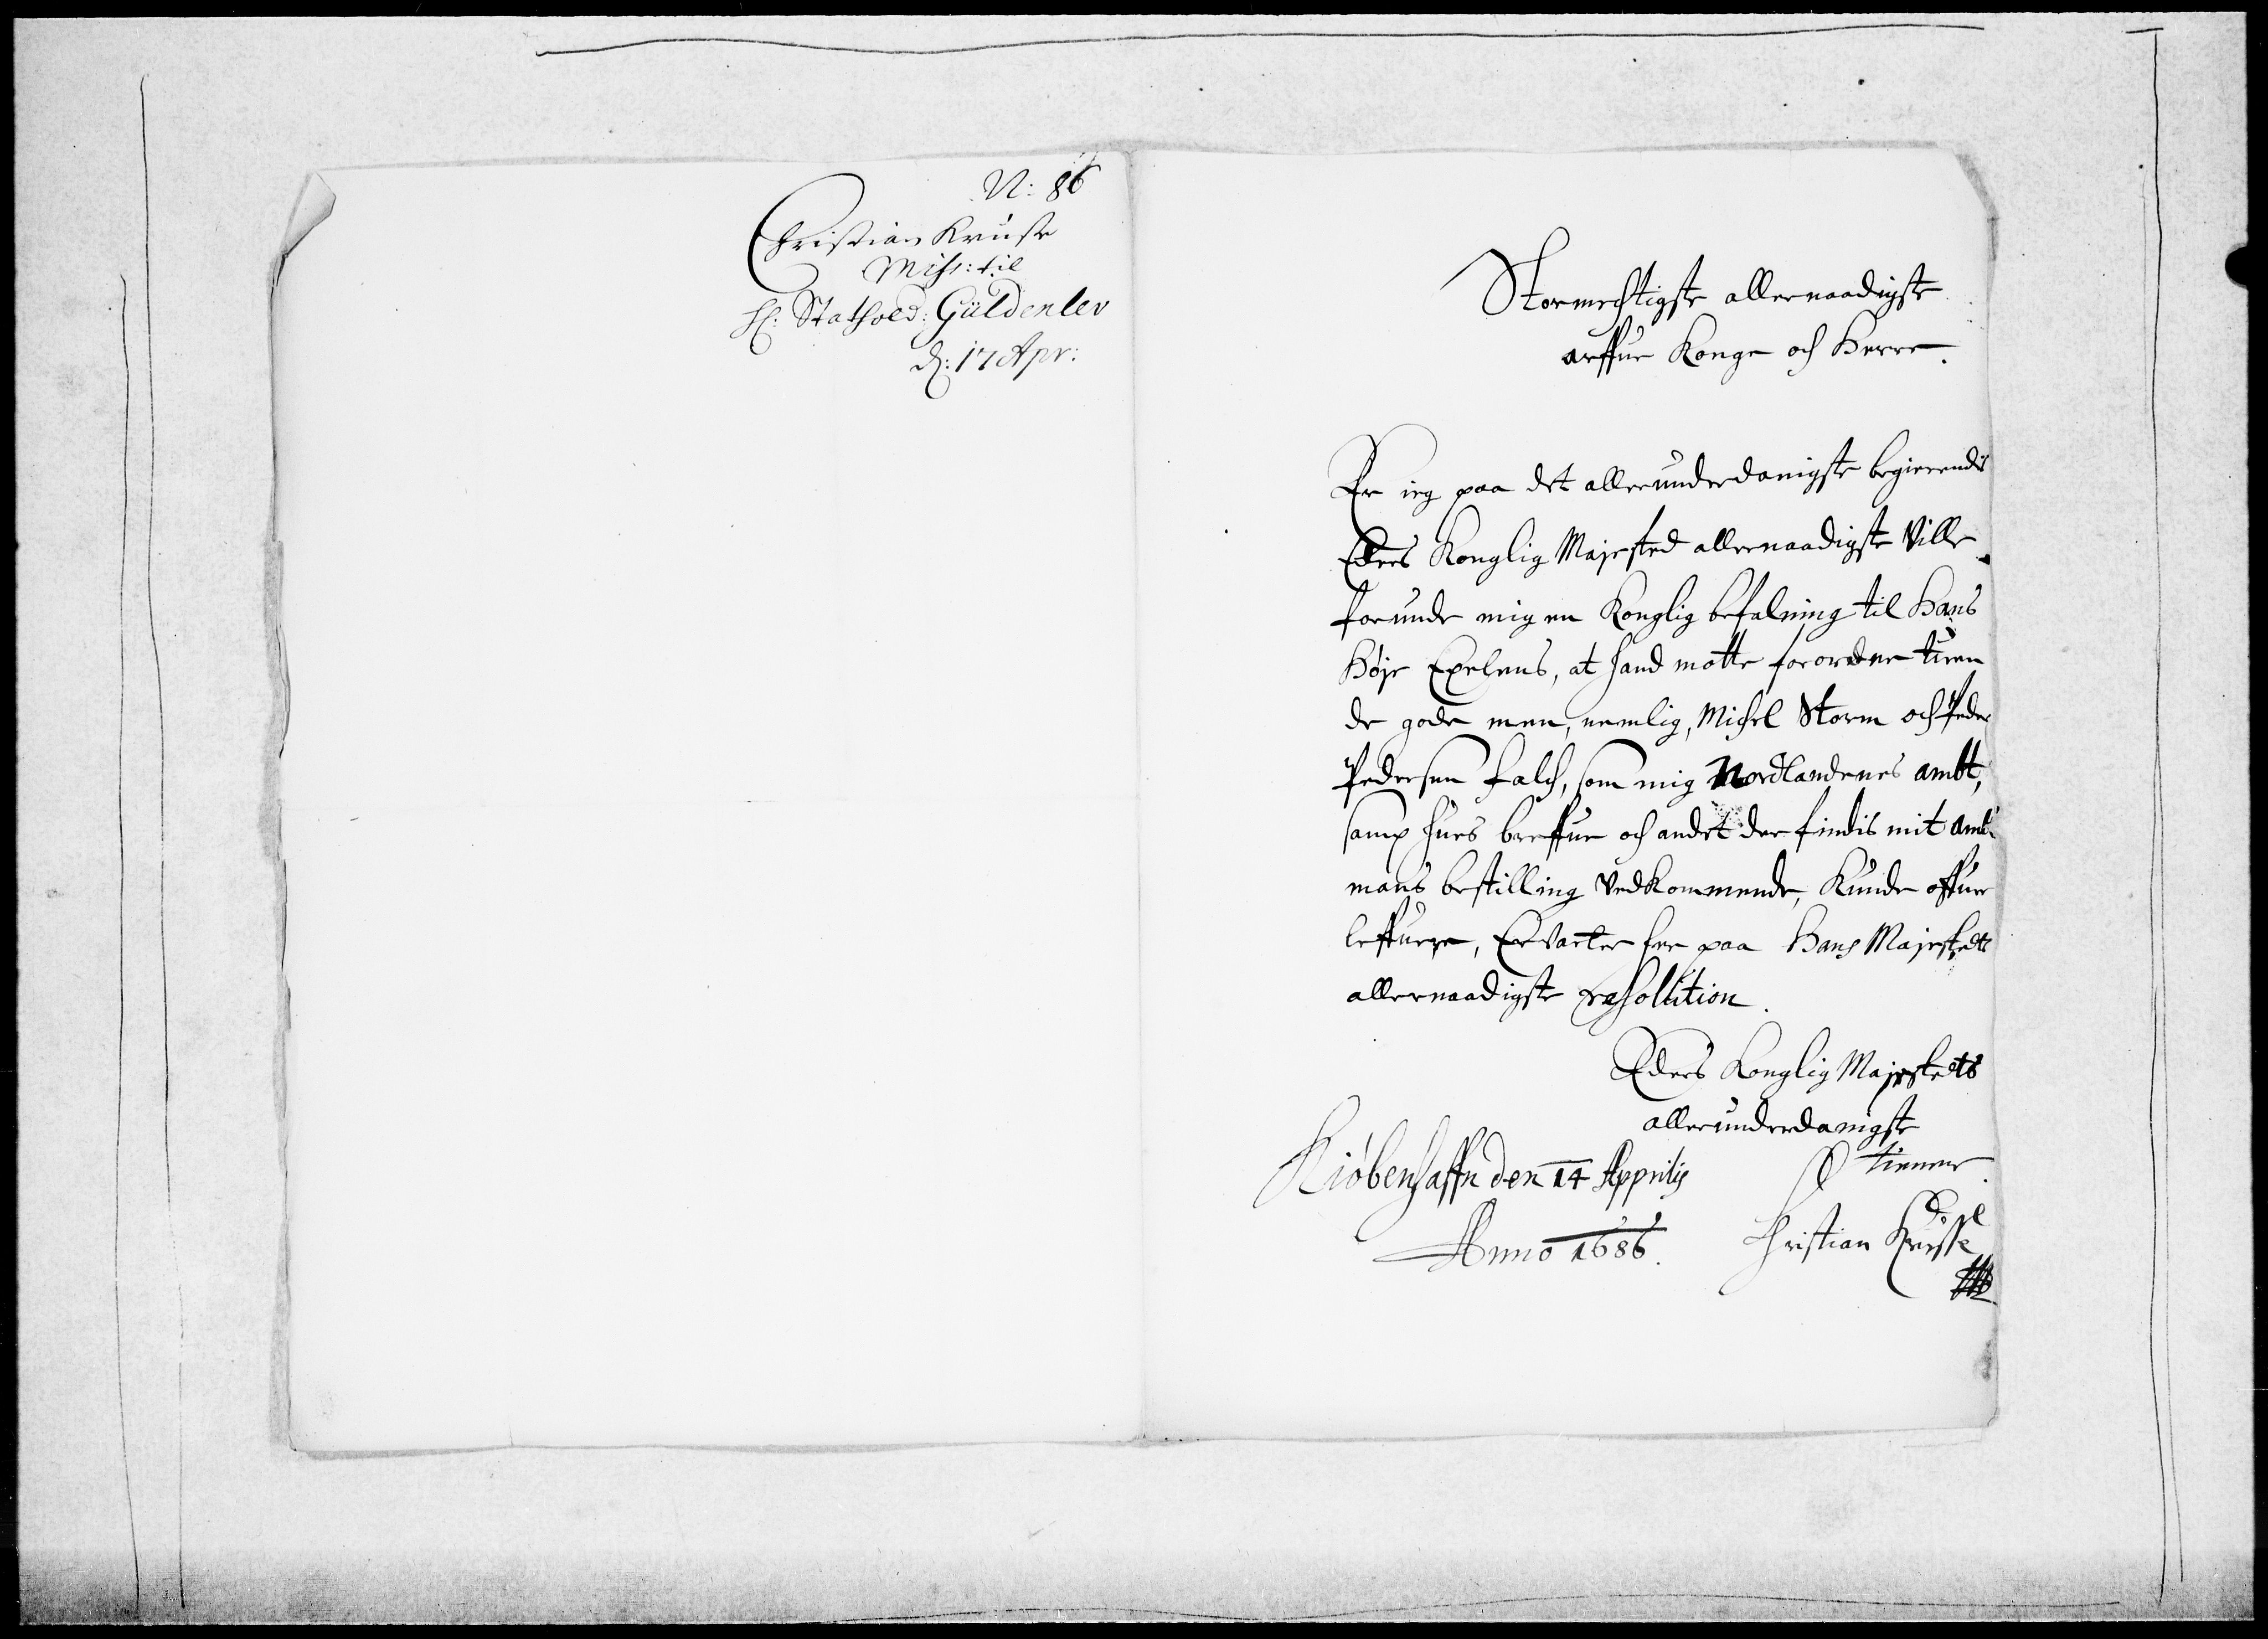 N: 86
Christian Kruse
Miss: til
H: Stathold: Güldenlev
d: 17 Apr:
Stormechtigste allernaadigste
arffue Konge och Herre.
Er ieg paa det allerunderdanigste begierendis
Eders Konglig Majested allernaadigste Ville
forunde mig en Konglig befalning til Hans
Høje Exelens, at hand motte forordne tuen
de gode men, nemlig, Michel Storm och Peder
Pedersen Falch, som mig Nordlandenes ambt,
samp hues breffue och andet der findis mit ambt
mans bestilling Vedkommende, Kunde offuer
leffuere, ErVarter her paa Hans Majestedts
allernaadigste resollution.
Eders Konglig Majestedts
allerunderdanigste
tienner
Kiøbenhaffn den 14 Apprilis
Anno 1686.
Christian Krusse